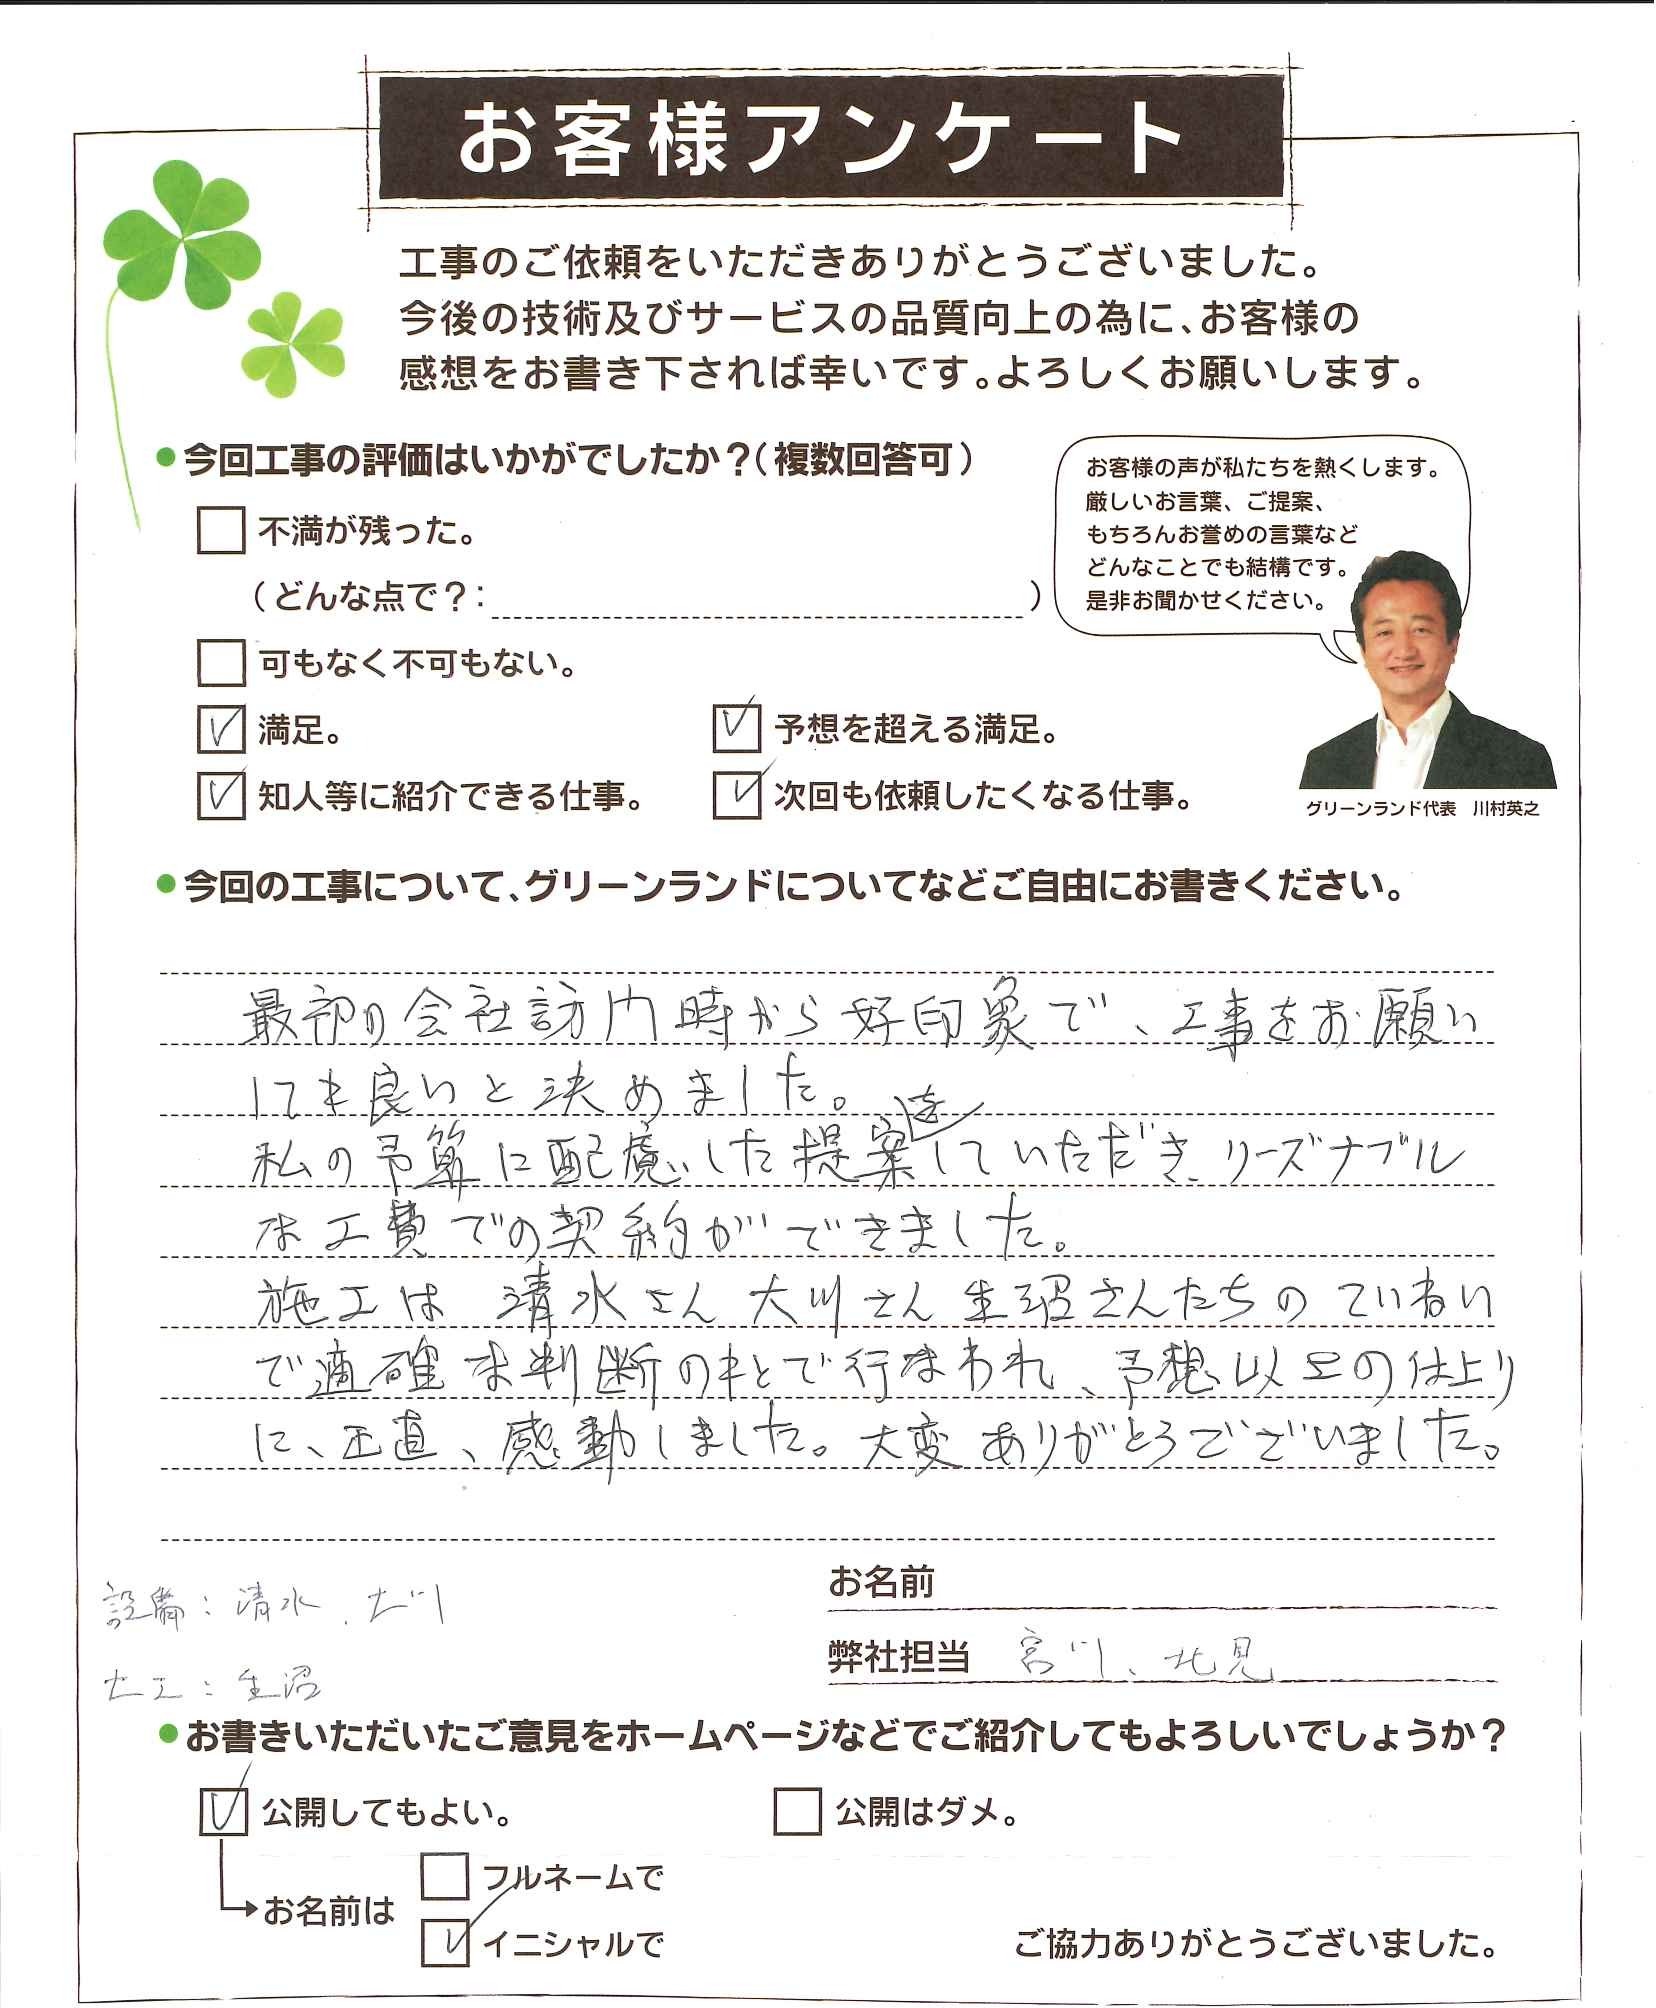 お客様アンケート
工事のご依頼をいただきありがとうございました。
今後の技術及びサービスの品質向上の為に、お客様の
感想をお書き下されば幸いです。よろしくお願いします。
●今回工事の評価はいかがでしたか?(複数回答可)
不満が残った。
(どんな点で?: )
可もなく不可もない。
満足。
予想を超える満足。
知人等に紹介できる仕事。
次回も依頼したくなる仕事。
お客様の声が私たちを熱くします。
厳しいお言葉、ご提案、
もちろんお誉めの言葉など
どんなことでも結構です。
是非お聞かせください。
グリーンランド代表 川村英之
●今回の工事について、グリーンランドについてなどご自由にお書きください。
最初の会社訪問時から好印象で、工事をお願い
しても良いと決めました。
私の予算に配慮した提案をしていただき、リーズナブル
な工費での契約ができました。
施工は 清水さん 大川さん 生沼さんたちの ていねい
で適確な判断のもとで行なわれ、予想以上の仕上り
に、正直、感動しました。大変ありがとうございました。
お名前
設備:清水、大川
弊社担当 宮川、北見
大工:生沼
●お書きいただいたご意見をホームページなどでご紹介してもよろしいでしょうか?
公開してもよい。
公開はダメ。
お名前は
フルネームで
イニシャルで
ご協力ありがとうございました。